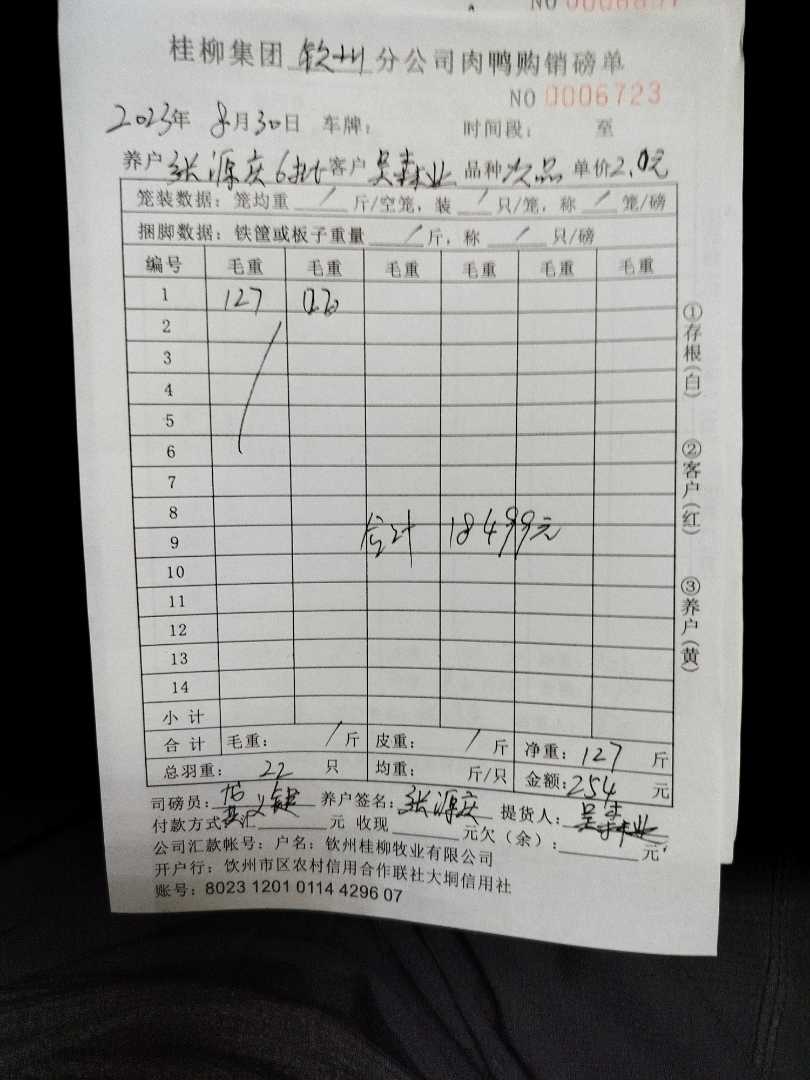 NO 0006697
桂柳集团 钦州 分公司肉鸭购销磅单
NO 0006723
2023年 8月30日 车牌： 时间段： 至
养户 张源庆6批 客户 吴森业 品种 次品 单价2.0元
笼装数据：笼均重 / 斤/空笼，装 / 只/笼，称 / 笼/磅
捆脚数据：铁筐或板子重量 / 斤，称 / 只/磅
编号 毛重 毛重 毛重 毛重 毛重 毛重
1 127
2
3
4
5
6
7
8
9 合计 18499元
10
11
12
13
14
小计
合计 毛重： / 斤 皮重： / 斤 净重：127 斤
总羽重： 22 只 均重： 斤/只 金额：254 元
司磅员： 养户签名：张源庆 提货人：吴森业
付款方式：汇 元 收现 元欠（余）： 元
公司汇款帐号：户名：钦州桂柳牧业有限公司
开户行：钦州市区农村信用合作联社大垌信用社
账号：8023 1201 0114 4296 07
①存根（白）
②客户（红）
③养户（黄）